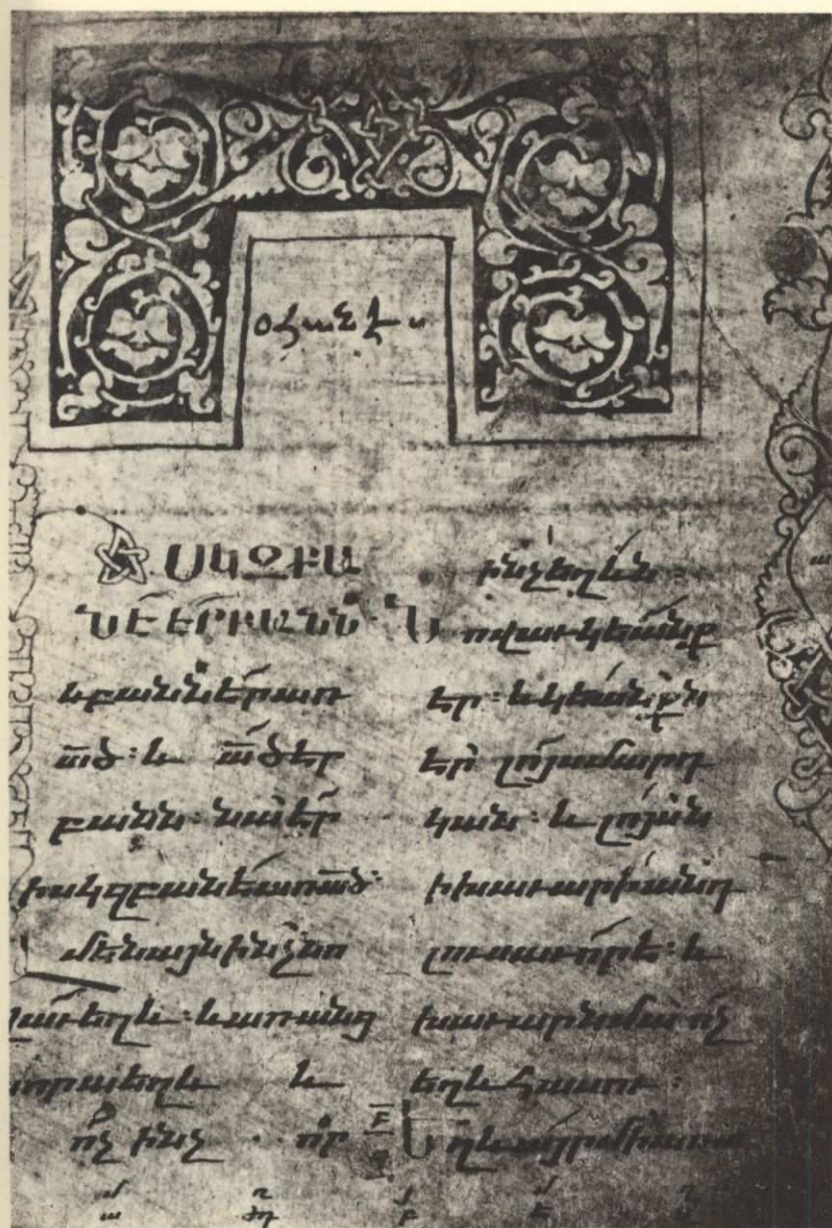 Ի ՍԿԶԲԱ
ՆԷ ԷՐ ԲԱՆՆ
և բանն էր առ
ած։ և ած էր
բանն։ նա էր
իսկզբանէ առ ած։
մենայն ինչ նո
վաւ եղև։ և առանց
նորա եղև և
ոչ ինչ. որ
ինչ եղևն։
Նովաւ կեանք
էր։ և կեանքն
էր լոյս մարդ
կան։ և լոյսն
ի խաւարի անդ
լուսաւոր է։ և
խաւար նմա ոչ
եղև հասու։
Եղև այր մի առա